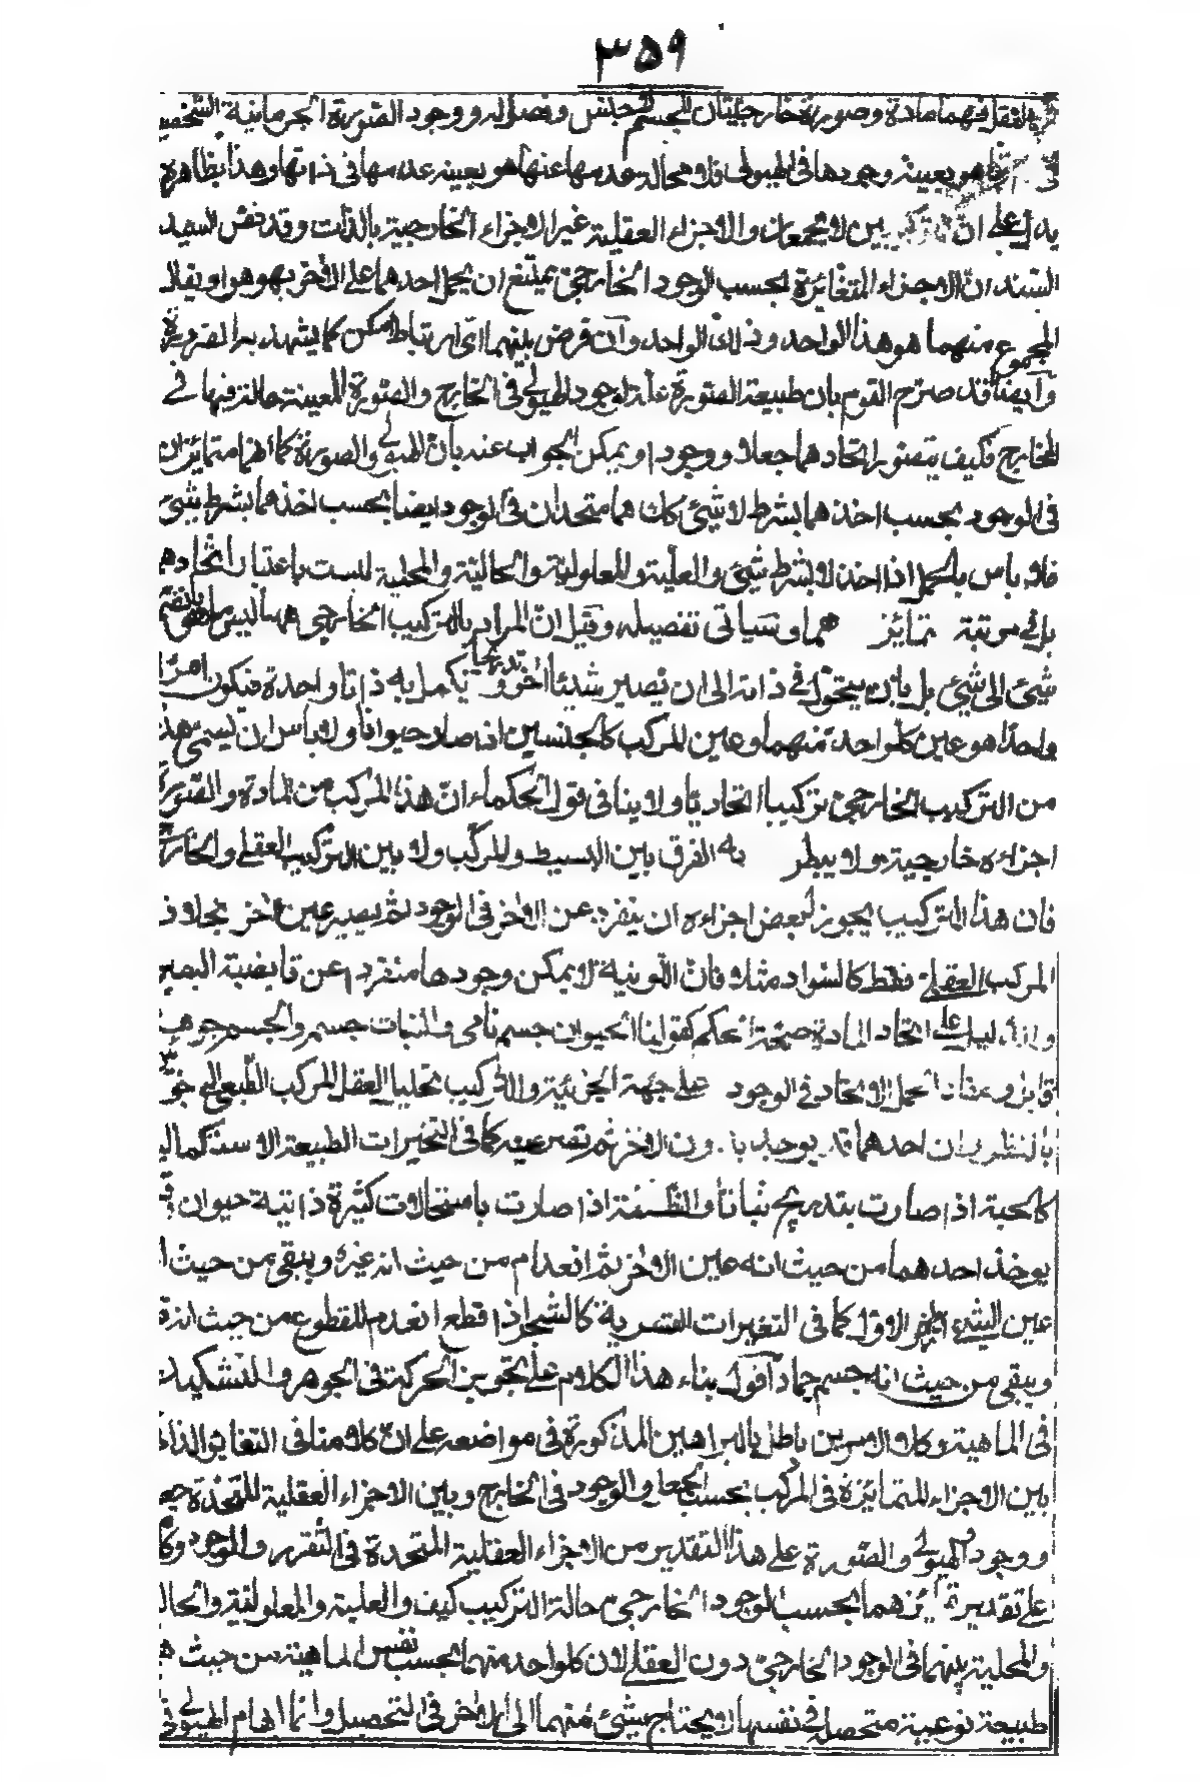 ۳۵۹
فهما مادة وصورة خارجيتان للجسم وجنس وفصل له ووجود الصورة الجرمانية
هو بعينه وجودها في الهيولى فلا محالة عدمها عنها هو بعينه عدمها في ذاتها وهذا بظاهره
يدل على ان لا يجمعان والاجزاء العقلية غير الاجزاء الخارجية بالذات وقد نقش السيد
السند ان الاجزاء المتغائرة بحسب الوجود الخارجي يمتنع ان يحمل احدهما على الآخر بهو هو او يقال
المجموع منهما هو هذا الواحد وذلك الواحد وان فرض بينهما اي ارتباط امكن كما يشهد به الضرورة
وايضا قد صرح القوم بان طبيعة الصورة علة لوجود الهيولى في الخارج والصورة المعينة حالة فيها في
الخارج فكيف يتصور اتحادهما جعلا ووجودا ويمكن الجواب عنه بان الهيولى والصورة كما انهما متمائزان
في الوجود بحسب اخذهما بشرط لا شيئ كك هما متحدان في الوجود ايضا بحسب اخذهما بشرط شيئ
فلا باس بالحمل اذا اخذ لا بشرط شيئ والعلية والمعلولية والحالية والمحلية ليست باعتبار اتحادهما
بل في مرتبة تمائزهما وسياتي تفصيله وقيل ان المراد بالتركيب الخارجي ههنا ليس ما هو بالضم
شيئ الى شيئ بل بان يتحول في ذاته الى ان يصير شيئا آخر و تدريجا يكمل به ذاتا واحدة فيكون امرا
واحدا هو عين كل واحد منهما وعين المركب كالجنسين اذ صار حيوانا ولا باس ان يسمى هذا
من التركيب الخارجي تركيبا اتحاديا ولا ينافي قول الحكماء ان هذا المركب من المادة والصورة
اجزاءه خارجية ولا يبطل به الفرق بين البسيط والمركب ولا بين التركيب العقلي والخارجي
فان هذا التركيب يجوز لبعض اجزاءه ان ينفرد عن الآخر في الوجود ثم يصير عين آخر بخلاف
المركب العقلي فقط كالسواد مثلا فان اللونية لا يمكن وجودها منفردا عن قابضية البصر
والدليل على اتحاد المادة صحة الحكم كقولنا الحيوان جسم نامي والنبات جسم والجسم جوهر
قابل ومفاد الحمل الاتحاد في الوجود على جهة الجزئية والتركيب تحليل العقل المركب الطبعي الى جزئين
بالنظر ان احدهما قد يوجد بدون الآخر ثم تصير عينه كما في التغيرات الطبيعة الاستكمالية
كالحبة اذ صارت بتدريج نباتا والنطفة اذ صارت باستحالات كثيرة ذاتية حيوان
يوخذ احدهما من حيث انه عين الآخر ثم انعدام من حيث انه غيره ويبقى من حيث
عين الشيئ الاول كما في التغيرات القسرية كالشجر اذا قطع انعدم المقطوع من حيث انه
ويبقى من حيث انه جسم جماد اقول بناء هذا الكلام على تجويز الحركة في الجوهر والتشكيك
في الماهية وكلا الامرين باطل بالبراهين المذكورة في مواضعه على ان كلامنا في التغاير الذاتي
بين الاجزاء المتمائزة في المركب بحسب الجعل والوجود في الخارج وبين الاجزاء العقلية المتحدة جعلا
ووجود الهيولى والصورة على هذا التقدير من الاجزاء العقلية المتحدة في التقرر والوجود
على تقدير تمايزهما بحسب الوجود الخارجي حالة التركيب كيف والعلية والمعلولية والحالية
والمحلية بينهما في الوجود الخارجي دون العقلي لان كل واحد منهما بحسب نفس الماهية من حيث
طبيعة نوعية متحصلة في نفسها لا يحتاج شيئ منهما الى الآخر في التحصيل وانما ابهام الهيولى